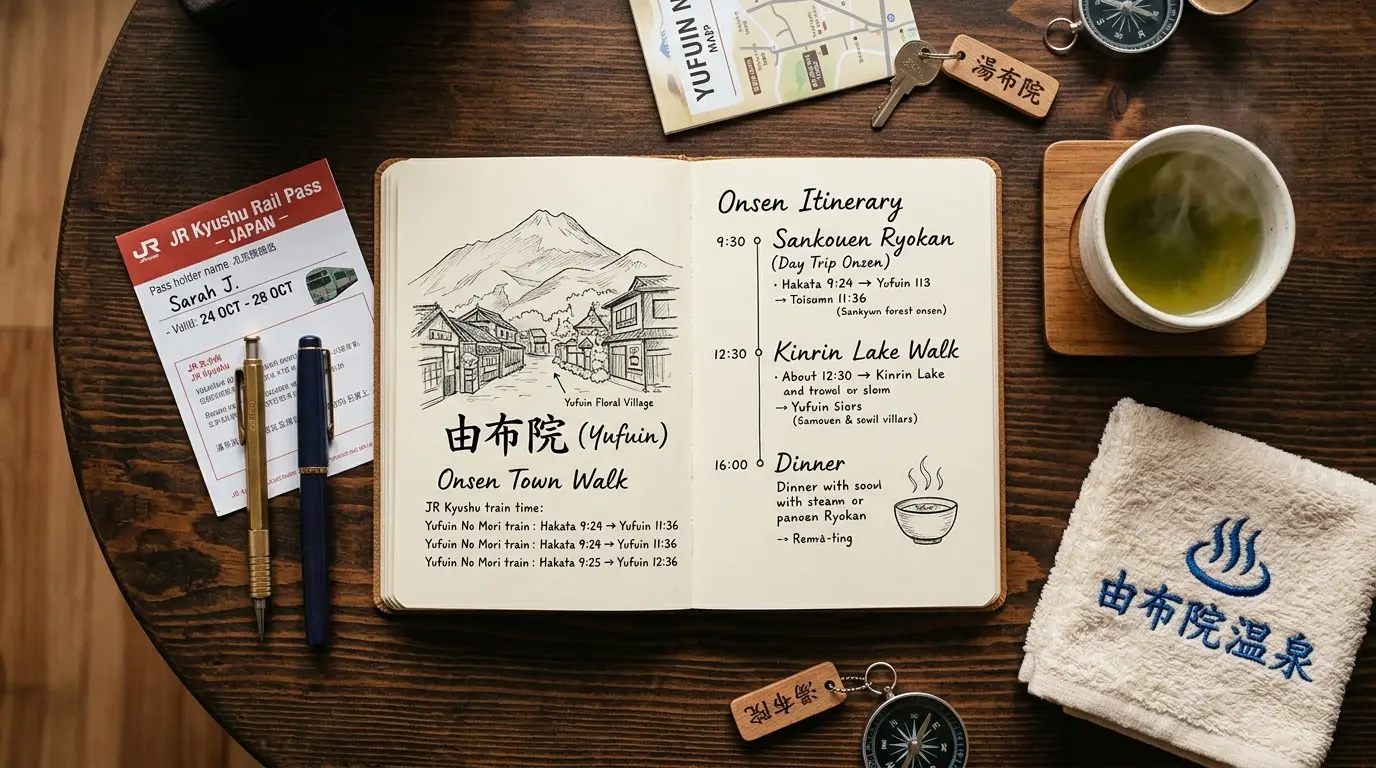 YUFUIN
MAP
湯布院
JR
JR Kyushu Rail Pass
– JAPAN –
Pass holder name
Sarah J.
24 OCT - 28 OCT
Yufuin Floral Village
由布院 (Yufuin)
Onsen Town Walk
JR Kyushu train time:
Yufuin No Mori train : Hakata 9:24 → Yufuin 11:36
Yufuin No Mori train : Hakata 9:24 → Yufuin 11:36
Yufuin No Mori train : Hakata 9:25 → Yufuin 12:36
Onsen Itinerary
9:30 Sankouen Ryokan
(Day Trip Onzen)
· Hakata 9:24 → Yufuin 113
→ Toisumn 11:36
(Sankywn forest onsen)
12:30 Kinrin Lake Walk
· About 12:30 → Kinrin Lake
and trowol or slom
→ Yufuin Siors
(Samouen & sowil villars)
16:00 Dinner
Dinner with sooul
with steam or
panoen Ryokan
→ Remà-ting
由布院温泉
湯布院